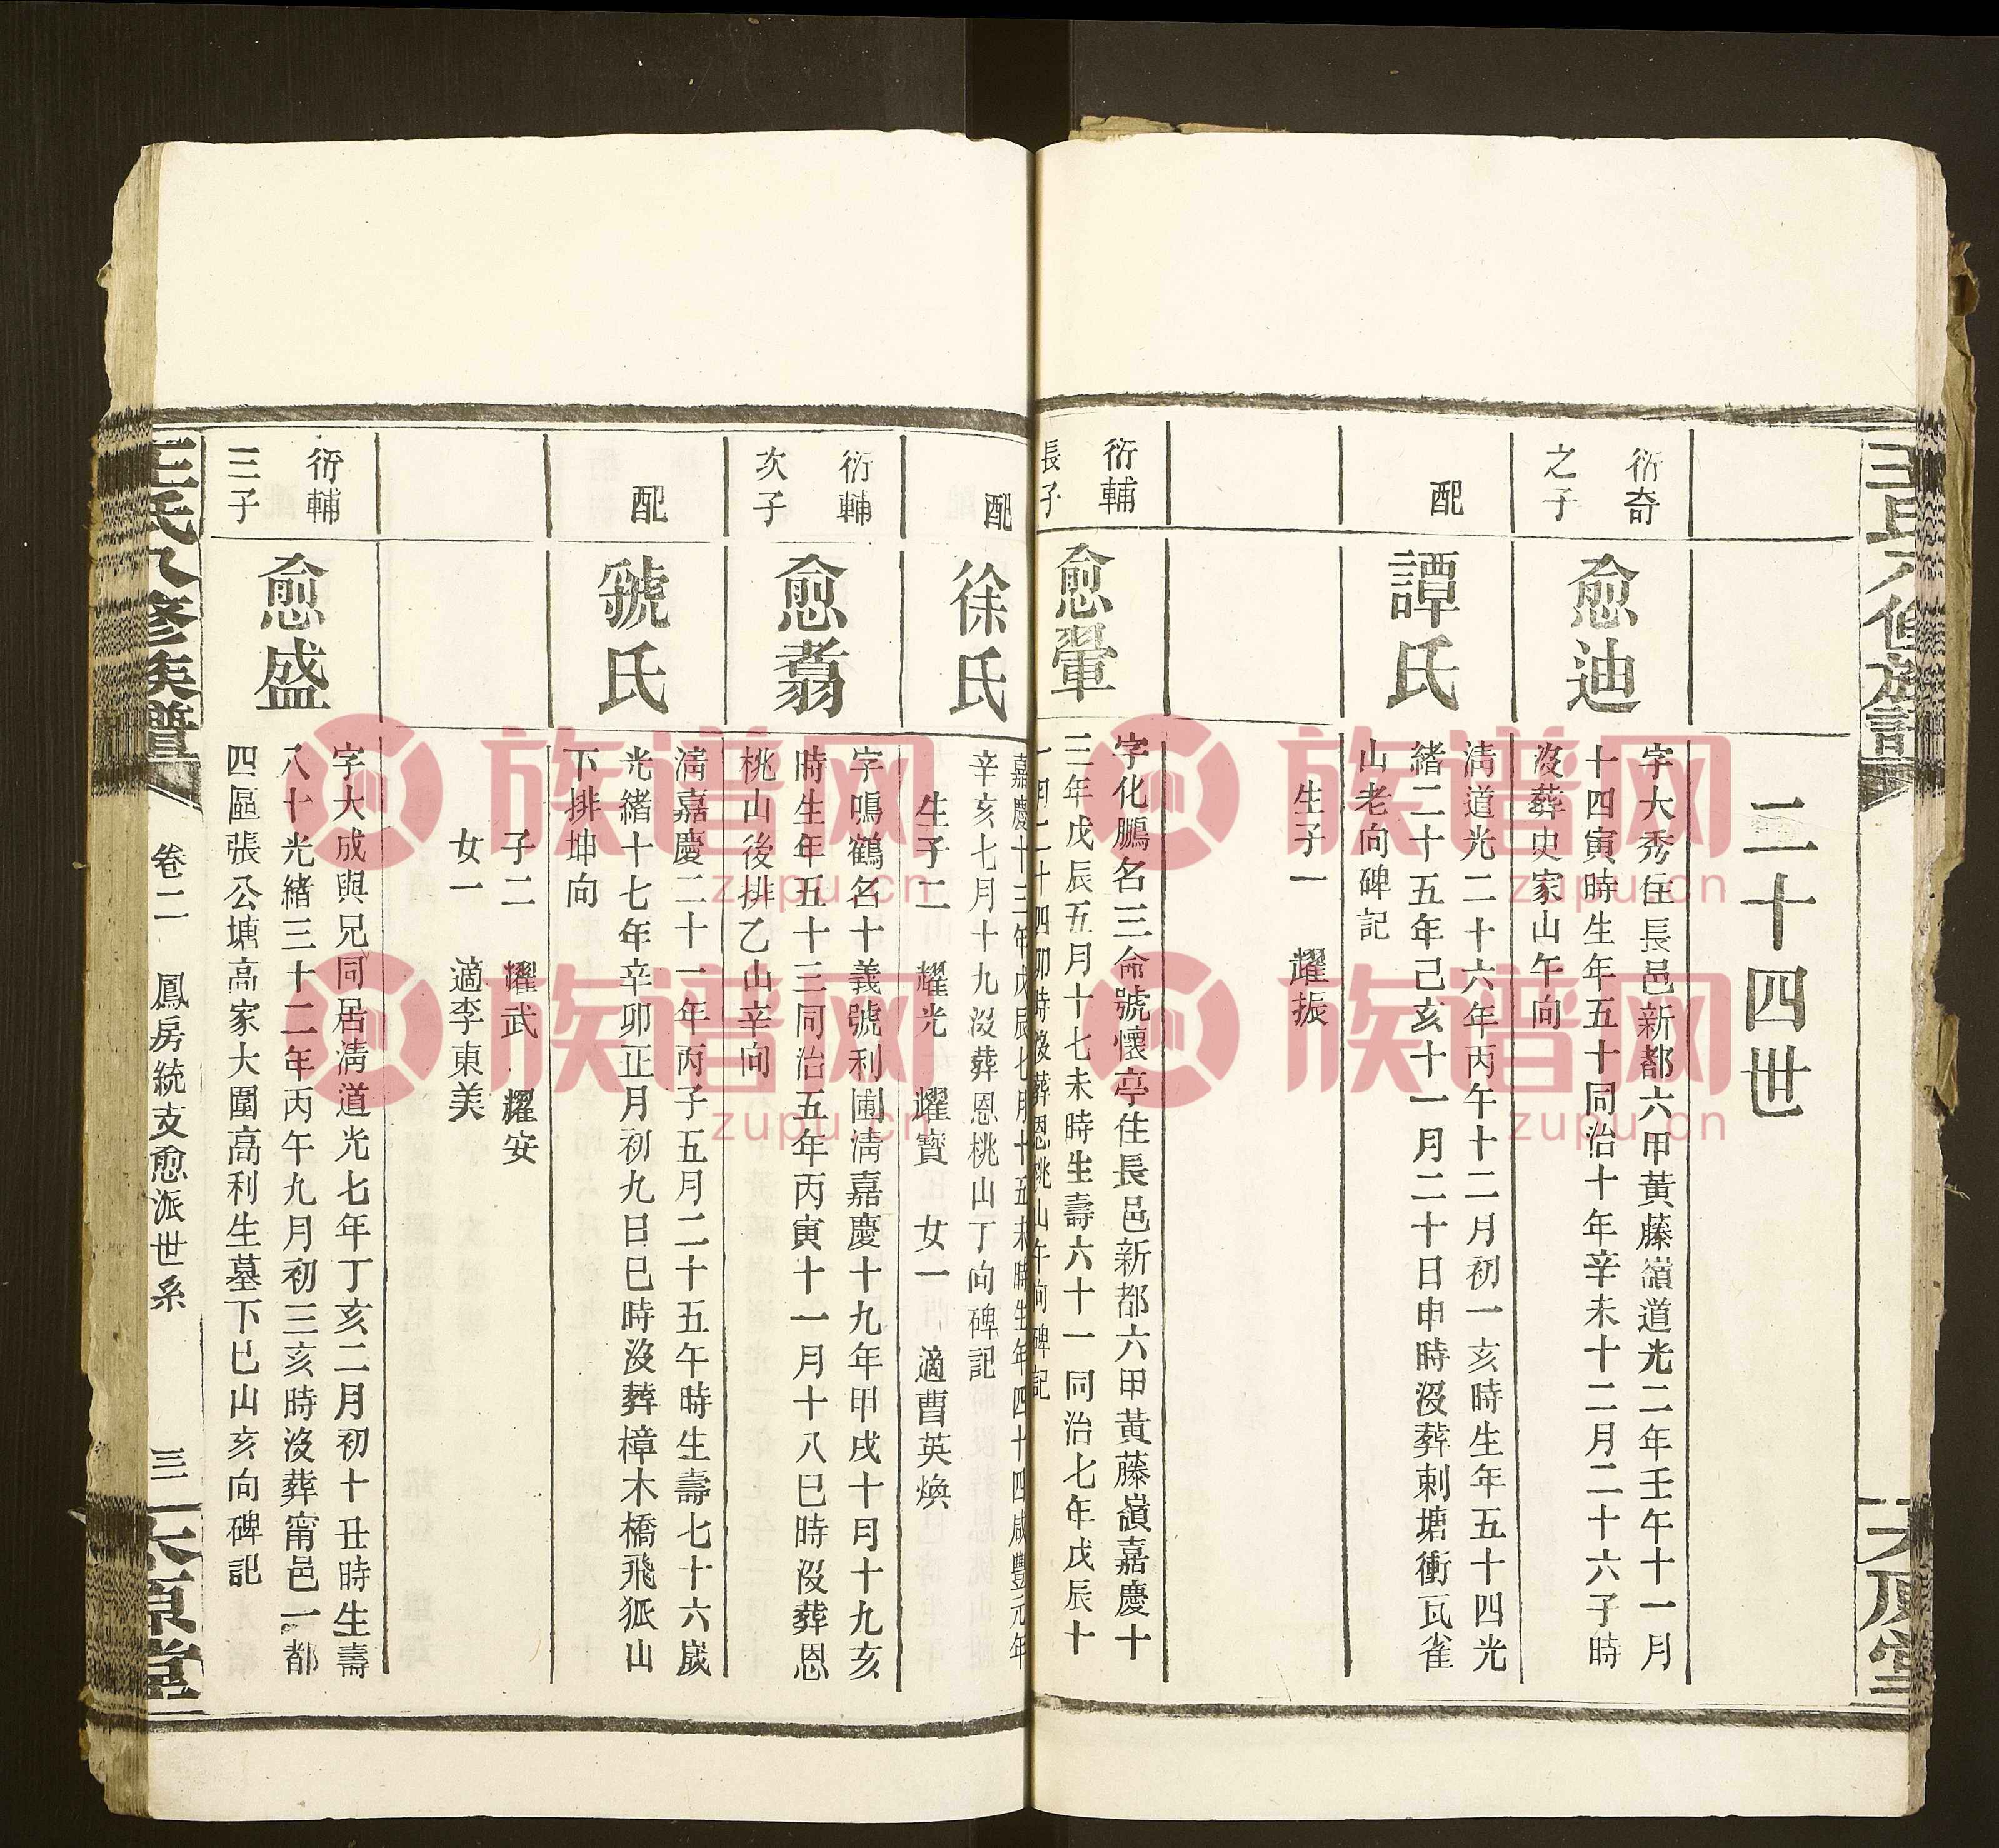 二十四世
衍奇
之子
愈迪
字大秀住長邑新都六甲黃藤嶺道光二年壬午十一月
十四寅時生年五十同治十年辛未十二月二十六子時
沒葬史家山午向
配
譚氏
淸道光二十六年丙午十二月初一亥時生年五十四光
緒二十五年己亥十一月二十日申時沒葬刺塘衝瓦雀
山老向碑記
生子一 耀振
衍輔
長子
愈翬
字化鵬名三命號懷亭住長邑新都六甲黃藤嶺嘉慶十
三年戊辰五月十七未時生壽六十一同治七年戊辰十
一月二十四卯時沒葬恩桃山午向碑記
配
徐氏
嘉慶十三年戊辰七月十五未時生年四十四咸豐元年
辛亥七月十九沒葬恩桃山丁向碑記
生子二 耀光 耀寶 女一 適曹英煥
衍輔
次子
愈翥
字鳴鶴名十義號利圃淸嘉慶十九年甲戌十月十九亥
時生年五十三同治五年丙寅十一月十八巳時沒葬恩
桃山後排乙山辛向
配
虢氏
淸嘉慶二十一年丙子五月二十五午時生壽七十六歲
光緒十七年辛卯正月初九日巳時沒葬樟木橋飛狐山
下排坤向
子二 耀武 耀安
女一 適李東美
衍輔
三子
愈盛
字大成與兄同居淸道光七年丁亥二月初十丑時生壽
八十光緒三十二年丙午九月初三亥時沒葬甯邑一都
四區張公塘高家大圍高利生墓下巳山亥向碑記
王氏八修族譜
卷二 鳳房統支愈派世系
三
太原堂
族谱网
zupu.cn
族谱网
zupu.cn
族谱网
zupu.cn
族谱网
zupu.cn